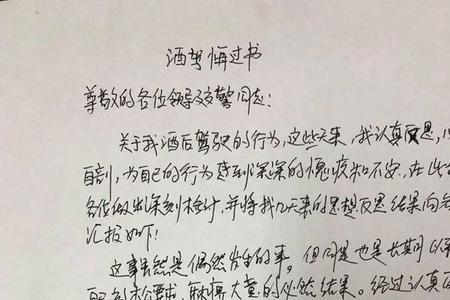 酒驾悔过书
尊敬的各位领导及交警同志：
关于我酒后驾驶的行为，这些天来，我认真反思，
自剖，为自己的行为感到深深的愧疚和不安，在此
各位做出深刻检讨，并将我几天来的思想反思结果向
汇报如下：
这事虽然是偶然发生的事，但同是也是长期以
麻痹大意的必然结果。经过认真